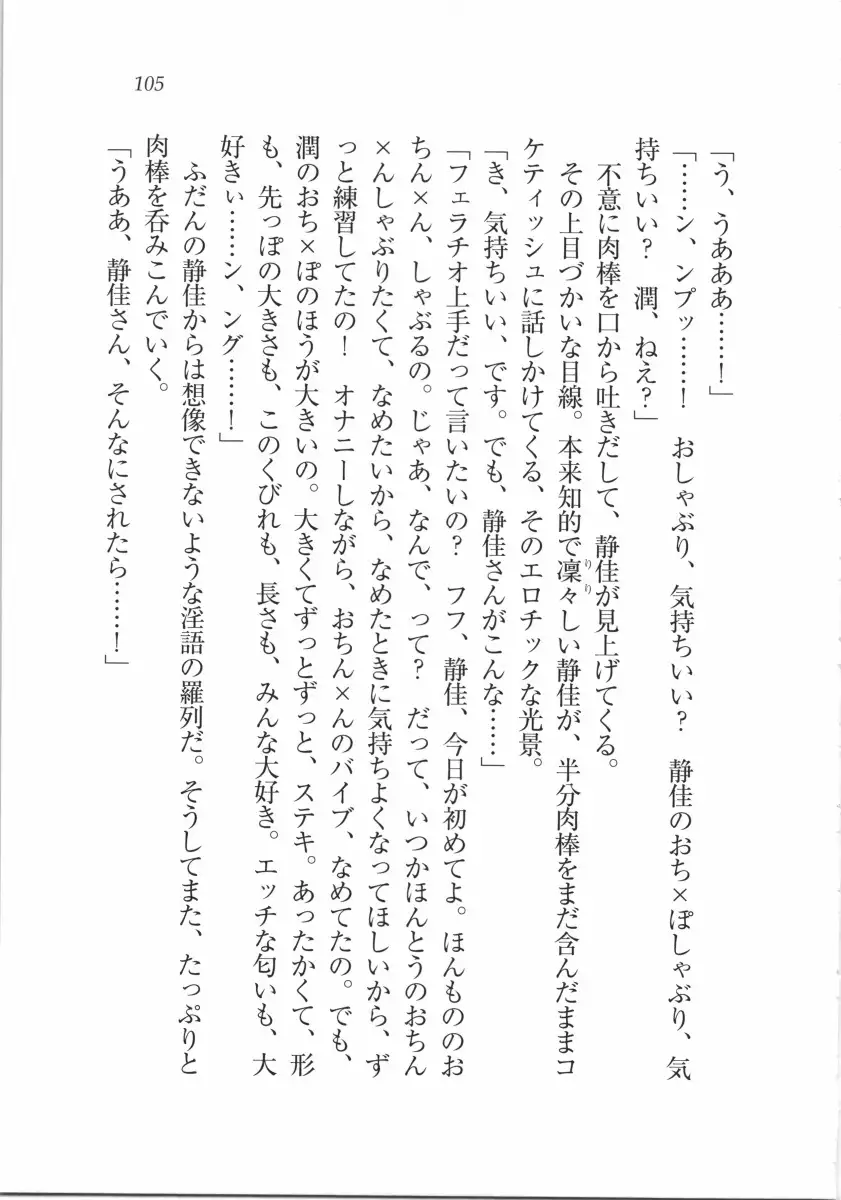 105
「う、うあああ……！」
「……ン、ンプッ……！　おしゃぶり、気持ちいい？　静佳のおち×ぽしゃぶり、気
持ちいい？　潤、ねえ？」
　不意に肉棒を口から吐きだして、静佳が見上げてくる。
　その上目づかいな目線。本来知的で凜々しい静佳が、半分肉棒をまだ含んだままコ
ケティッシュに話しかけてくる、そのエロチックな光景。
「き、気持ちいい、です。でも、静佳さんがこんな……」
「フェラチオ上手だって言いたいの？　フフ、静佳、今日が初めてよ。ほんもののお
ちん×ん、しゃぶるの。じゃあ、なんで、って？　だって、いつかほんとうのおちん
×んしゃぶりたくて、なめたいから、なめたときに気持ちよくなってほしいから、ず
っと練習してたの！　オナニーしながら、おちん×んのバイブ、なめてたの。でも、
潤のおち×ぽのほうが大きいの。大きくてずっとずっと、ステキ。あったかくて、形
も、先っぽの大きさも、このくびれも、長さも、みんな大好き。エッチな匂いも、大
好きぃ……ン、ング……！」
　ふだんの静佳からは想像できないような淫語の羅列だ。そうしてまた、たっぷりと
肉棒を呑みこんでいく。
「うああ、静佳さん、そんなにされたら……！」